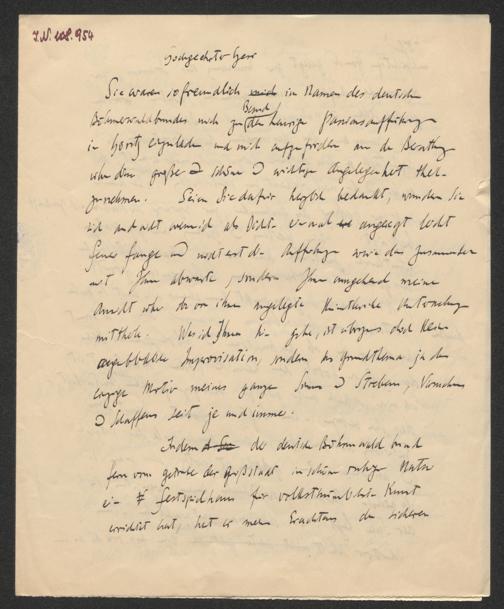 I.N. 208.954
Hochgeehrter Herr
Sie waren so freundlich mich im Namen des deutschen
Böhmerwaldbundes mich zum Besuch der heurigen Passionsaufführung
in Höritz einzuladen und mich aufzufordern an der Beratung
über diese große schöne wichtige Angelegenheit theil-
zunehmen. Seien Sie dafür herzlich bedankt, wundern Sie
sich und nicht wenn ich als Dichter einmal angeregt leicht
Feuer fange und nicht erst die Aufführung sowie das Zusammensein
mit Ihnen abwarte, sondern Ihnen umgehend meine
Ansicht über die von Ihnen angelegte künstlerische Unternehmung
mittheile. Was ich Ihnen hier gebe, ist übrigens doch keine
augenblickliche Improvisation, sondern das Grundthema ja das
einzige Motiv meines ganzen Sinnens Strebens, Versuchens
Schaffens seit je und immer.
Indem der deutsche Böhmerwaldbund
fern vom Getriebe der Großstadt in schöner ruhiger Natur
ein Festspielhaus für volksthümliche Kunst
errichtet hat, hat er meines Erachtens den sicheren